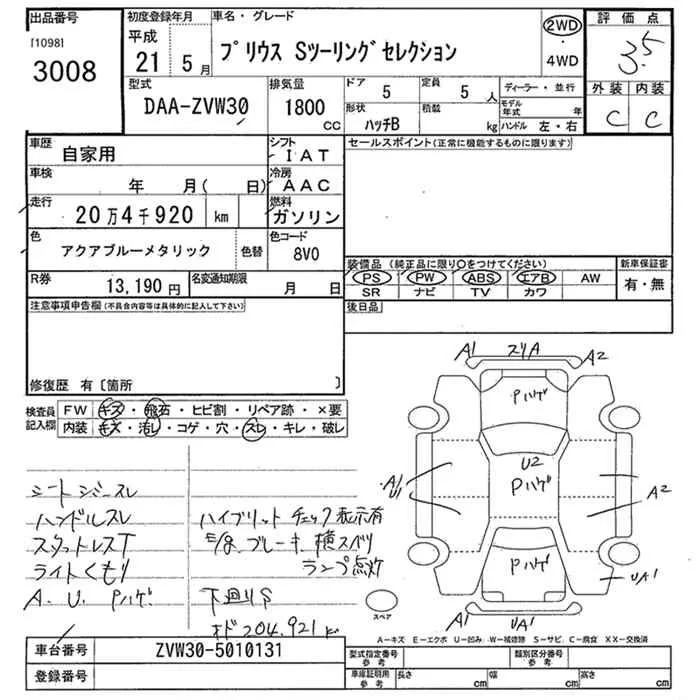 出品番号
[1098]
3008
初度登録年月
平成
21 5月
車名・グレード
プリウス Sツーリングセレクション
2WD
・
4WD
評価点
3.5
外装 内装
C C
型式
DAA-ZVW30
排気量
1800
cc
ドア
5
定員
5 人
形状
ハッチB
積載
kg
ディーラー・並行
モデル年式 年
ハンドル 左・右
車歴
自家用
シフト
IAT
車検
年 月( 日)
冷房
AAC
走行
20万4千920 km
燃料
ガソリン
色
アクアブルーメタリック
色替
色コード
8V0
R券
13,190円
名変通知期限
月 日
セールスポイント(正常に機能するものに限ります)
装備品(純正品に限り○をつけてください)
新車保証書
PS PW ABS エアB AW
SR ナビ TV カワ
有・無
後日品
注意事項申告欄(不具合内容等は具体的に記入して下さい)
修復歴 有〔箇所 〕
検査員
記入欄
FW キズ・飛石・ヒビ割・リペア跡・×要
内装 キズ・汚レ・コゲ・穴・スレ・キレ・破レ
シートシミースレ
ハンドルスレ
スタットレスT
ライトくもり
A. U. Pハゲ
ハイブリット チェック表示有
ブレーキ、横スベリ
ランプ点灯
下廻りS
204,921
A1 スリA A2
Pハゲ
U2
Pハゲ
A1
U1
A2
Pハゲ
UA1
A1 UA1
スペア
A-キズ E-エクボ U-凹み W-補修跡 S-サビ C-腐食 XX-交換済
車台番号
ZVW30-5010131
登録番号
型式指定番号
参考
類別区分番号
参考
車庫証明用
参考
長さ cm
幅 cm
高さ cm